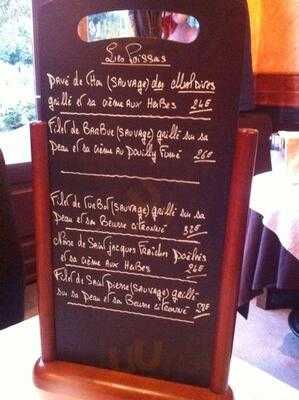 Les Poissons
Pavé de Thon (SAUVAGE) des Maldives
grillé et sa crème aux Herbes 24€
Filet de BARBUE (SAUVAGE) grillé sur sa
Peau et sa crème au Pouilly Fumé 26€
Filet de Turbot (SAUVAGE) grillé sur sa
Peau et son Beurre citronné 32€
Noix de Saint jacques Fraîches Poêlées
et sa crème aux Herbes 24€
Filet de Saint Pierre (SAUVAGE) grillé
sur sa Peau et sa Beurre citronné 28€